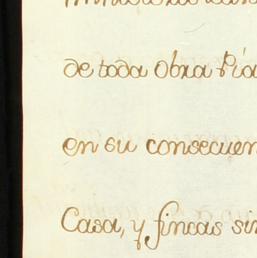 de toda obra Pia
en su consecuen
Casa, y fincas sin